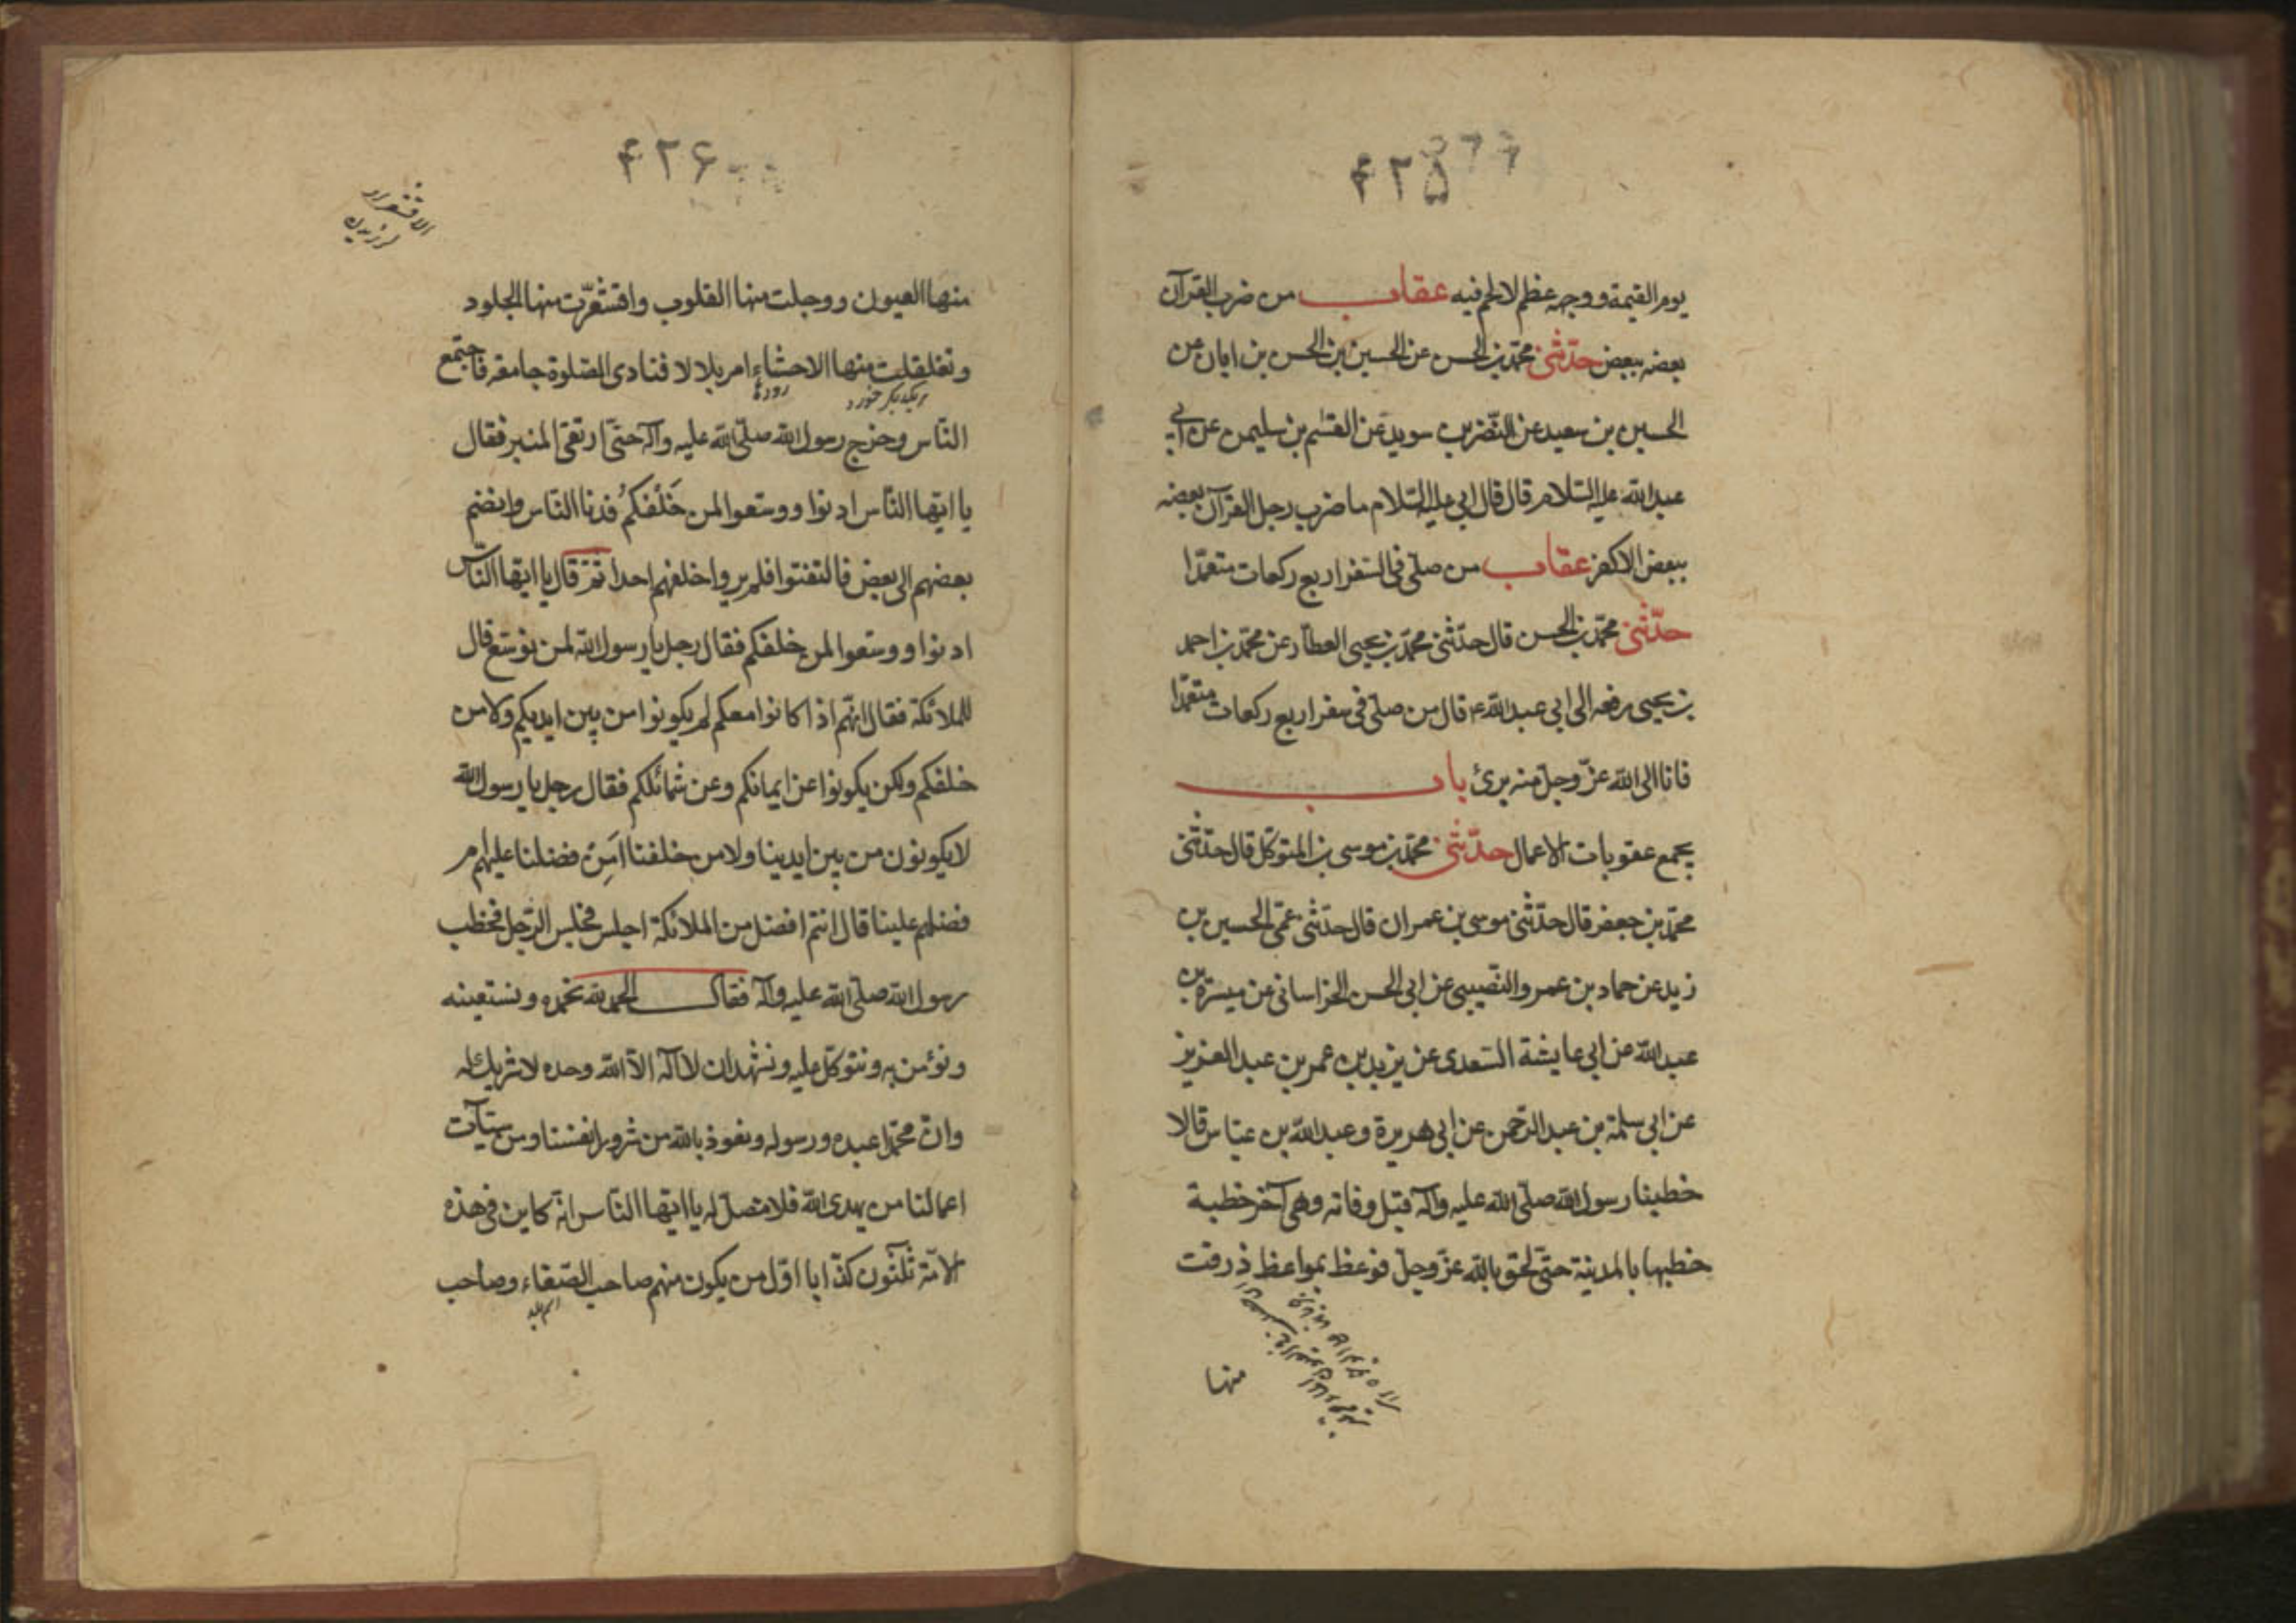 ۴۲۵
يوم القيمة ووجهه عظم لا لحم فيه عقاب من ضرب القرآن
بعضه ببعض حدّثني محمّد بن الحسن عن الحسين بن الحسن بن ابان عن
الحسين بن سعيد عن النّضر بن سويد عن القسم بن سليمن عن ابي
عبد الله عليه السّلام قال قال ابي عليه السّلام ما ضرب رجل القرآن بعضه
ببعض الا كفر عقاب من صلّى فى السّفر اربع ركعات متعمّدا
حدّثني محمّد بن الحسن قال حدّثني محمّد بن يحيى العطّار عن محمّد بن احمد
بن يحيى رفعه الى ابي عبد الله ع قال من صلّى فى سفر اربع ركعات متعمّدا
فانا الى الله عزّ وجلّ منه برئ باب
يجمع عقوبات الاعمال حدّثني محمّد بن موسى بن المتوكّل قال حدّثني
محمّد بن جعفر قال حدّثني موسى بن عمران قال حدّثني عمّي الحسين بن
زيد عن حماد بن عمرو النّصيبي عن ابي الحسن الخراساني عن ميسرة بن
عبد الله عن ابي عايشة السّعدى عن يزيد بن عمر بن عبد العزيز
عن ابي سلمة بن عبد الرّحمن عن ابي هريرة وعبد الله بن عبّاس قالا
خطبنا رسول الله صلّى الله عليه وآله قبل وفاته وهى آخر خطبة
خطبها بالمدينة حتّى لحق بالله عزّ وجلّ فوعظ بمواعظ ذرفت
منها
۴۲۶
الاقشعرار
لرزيدن
منها العيون ووجلت منها القلوب واقشعرّت منها الجلود
وتقلقلت منها الاحشاء امر بلالا فنادى الصّلوة جامعة فاجتمع
رودها
النّاس وخرج رسول الله صلّى الله عليه وآله حتّى ارتقى المنبر فقال
يا ايّها النّاس ادنوا ووسّعوا لمن خَلْفَكُم فدنا النّاس وانضم
بعضهم الى بعض فالتفتوا فلم يروا خلفهم احدا ثمّ قال يا ايّها النّاس
ادنوا ووسّعوا لمن خلفكم فقال رجل يا رسول الله لمن نوسّع قال
للملائكة فقال انّهم اذا كانوا معكم لم يكونوا من بين ايديكم ولا من
خلفكم ولكن يكونوا عن ايمانكم وعن شمائلكم فقال رجل يا رسول الله
لا يكونون من بين ايدينا ولا من خلفنا اَمِنْ فضلنا عليهم ام
فضلهم علينا قال انتم افضل من الملائكة اجلس فجلس الرّجل فخطب
رسول الله صلّى الله عليه وآله فقال الحمد لله نحمده ونستعينه
ونؤمن به ونتوكّل عليه ونشهد ان لا اله الّا الله وحده لا شريك له
وانّ محمّدا عبده ورسوله ونعوذ بالله من شرور انفسنا ومن سيّآت
اعمالنا من يهدى الله فلا مضلّ له يا ايّها النّاس انّه كاين فى هذه
الامّة ثلثون كذّابا اوّل من يكون منهم صاحب الصّنعاء وصاحب
اسم بلد